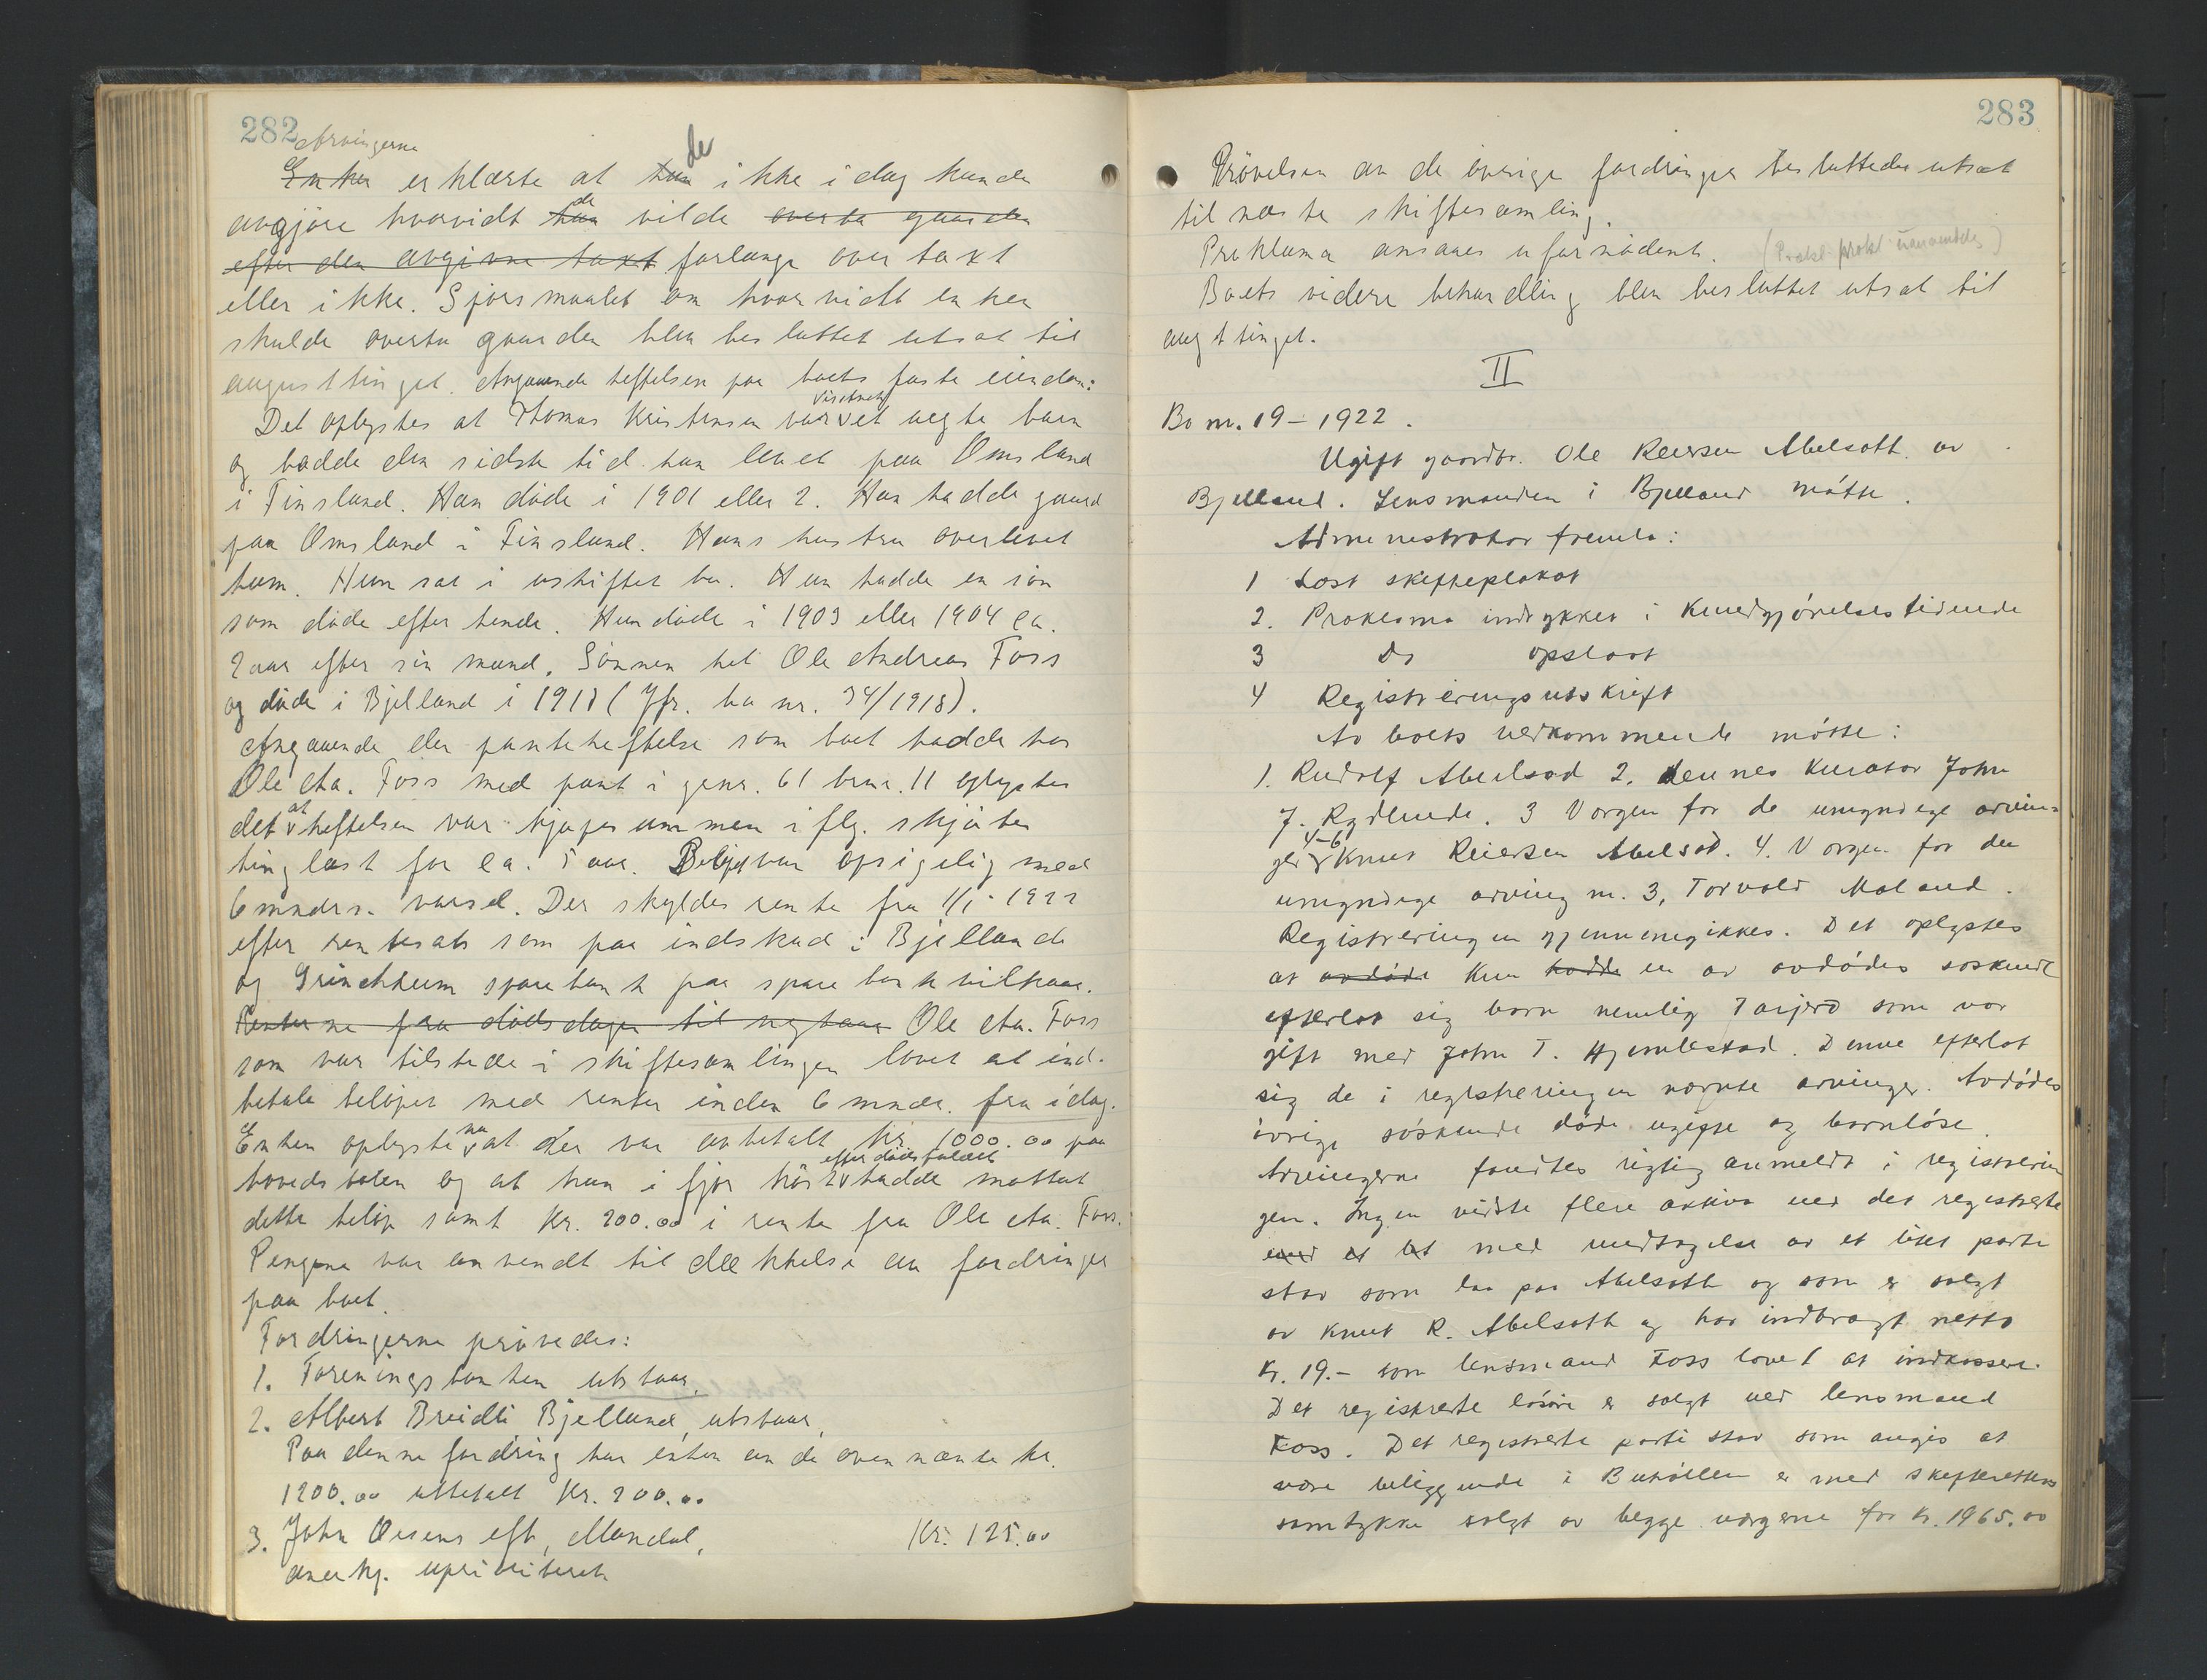 282
Arvingerne
Enken erklærte at hun de ikke idag kunde
avgjøre hvorvidt hun de vilde overta gaarden
efter den avgivne taxt forlange over taxt
eller ikke. Spørsmaalet om hvorvidt enken
skulde overta gaarden blev besluttet utsat til
augusttinget. Angaaende heftelsen paa boets faste eiendom:
Det oplystes at Thomas Kristensen var visstnok et uegte barn
og hadde den sidste tid han levet paa Omsland
i Finsland. Han døde i 1901 eller 2. Han hadde gaard
paa Omsland i Finsland. Hans hustru overlevet
ham. Hun sat i uskiftet bo. Hun hadde en søn
som døde efter hende. Hun døde i 1903 eller 1904 ca.
2 aar efter sin mand. Sønnen het Ole Andreas Foss
og døde i Bjelland i 1918 (Jfr. bo nr. 34/1918).
Angaaende den panteheftelse som boet hadde hos
Ole Aa. Foss med pant i gnr. 61 brnr. 11 oplystes
det at heftelsen var kjøpesummen iflg. skjøte
tinglæst for ca. 5 aar. Beløpet var opsigelig med
6 mndrs. varsel. Der skyldes rente fra 1/1-1922
efter rentesats som paa indskud i Bjelland
og Grindheim sparebank paa sparebankvilkaar.
Renterne fra dødsdagen til nytaar Ole Aa. Foss
som var tilstede i skiftesamlingen lovet at ind-
betale beløpet med renter inden 6 mndr. fra idag.
Enken oplyste nu at der var avbetalt kr. 1000.00 paa
hovedstolen og at hun i fjor høst efter dødsfaldet hadde mottat
dette beløp samt kr. 200.00 i rente fra Ole Aa. Foss.
Pengene var anvendt til dækkelse av fordringer
paa boet.
Fordringerne prøvedes:
1. Foreningsbanken utstaar.
2. Albert Breidli Bjelland, utstaar,
Paa denne fordring har enken av de ovennævnte kr.
1200.00 utbetalt kr. 200.00
3. John Olsens eft, Mandal, Kr. 125.00
anerkj. uprioritert
283
Prøvelsen av de øvrige fordringer besluttedes utsat
til næste skiftesamling.
Proklama ansaaes ufornødent.
Boets videre behandling blev besluttet utsat til
augsttinget.
II
Bo nr. 19 – 1922.
Ugift gaardbr. Ole Reiersen Abelsøth av
Bjelland. Lensmanden i Bjelland møtte.
Administrator fremla:
1 Læst skifteplakat
2. Proklama indrykket i Kundgjørelsestidende
3 do opslaat
4 Registreringsutskrift
Av boets vedkommende møtte:
1. Rudolf Abelsød 2. dennes kurator John
J. Rydlende. 3 Vorgen for de umyndige arvin-
ger 4-6 Knut Reiersen Abelsød. 4. Vorgen for den
umyndige arving nr. 3, Torvald Moland.
Registreringen gjennemgikkes. Det oplystes
at avdøde kun hadde en av avdødes søskende
efterlot sig barn nemlig Tarjerd som var
gift med John T. Hjemlestad. Denne efterlot
sig de i registreringen nævnte arvinger. Avdødes
øvrige søskende døde ugifte og barnløse.
Arvingerne fandtes rigtig anmeldt i registrerin
gen. Ingen vidste flere aktiva end det registrerte
end et let med undtagelse av et litet parti
stav som laa paa Abelsøth og som er solgt
av Knut R. Abelsøth og har indbragt netto
kr. 19.- som lensmand Foss lovet at indkassere.
Det registrerte løsøre er solgt ved lensmand
Foss. Det registrerte parti stav som angis at
være beliggende i er med skifterettens
samtykke solgt av begge vergerne for kr. 1965.00